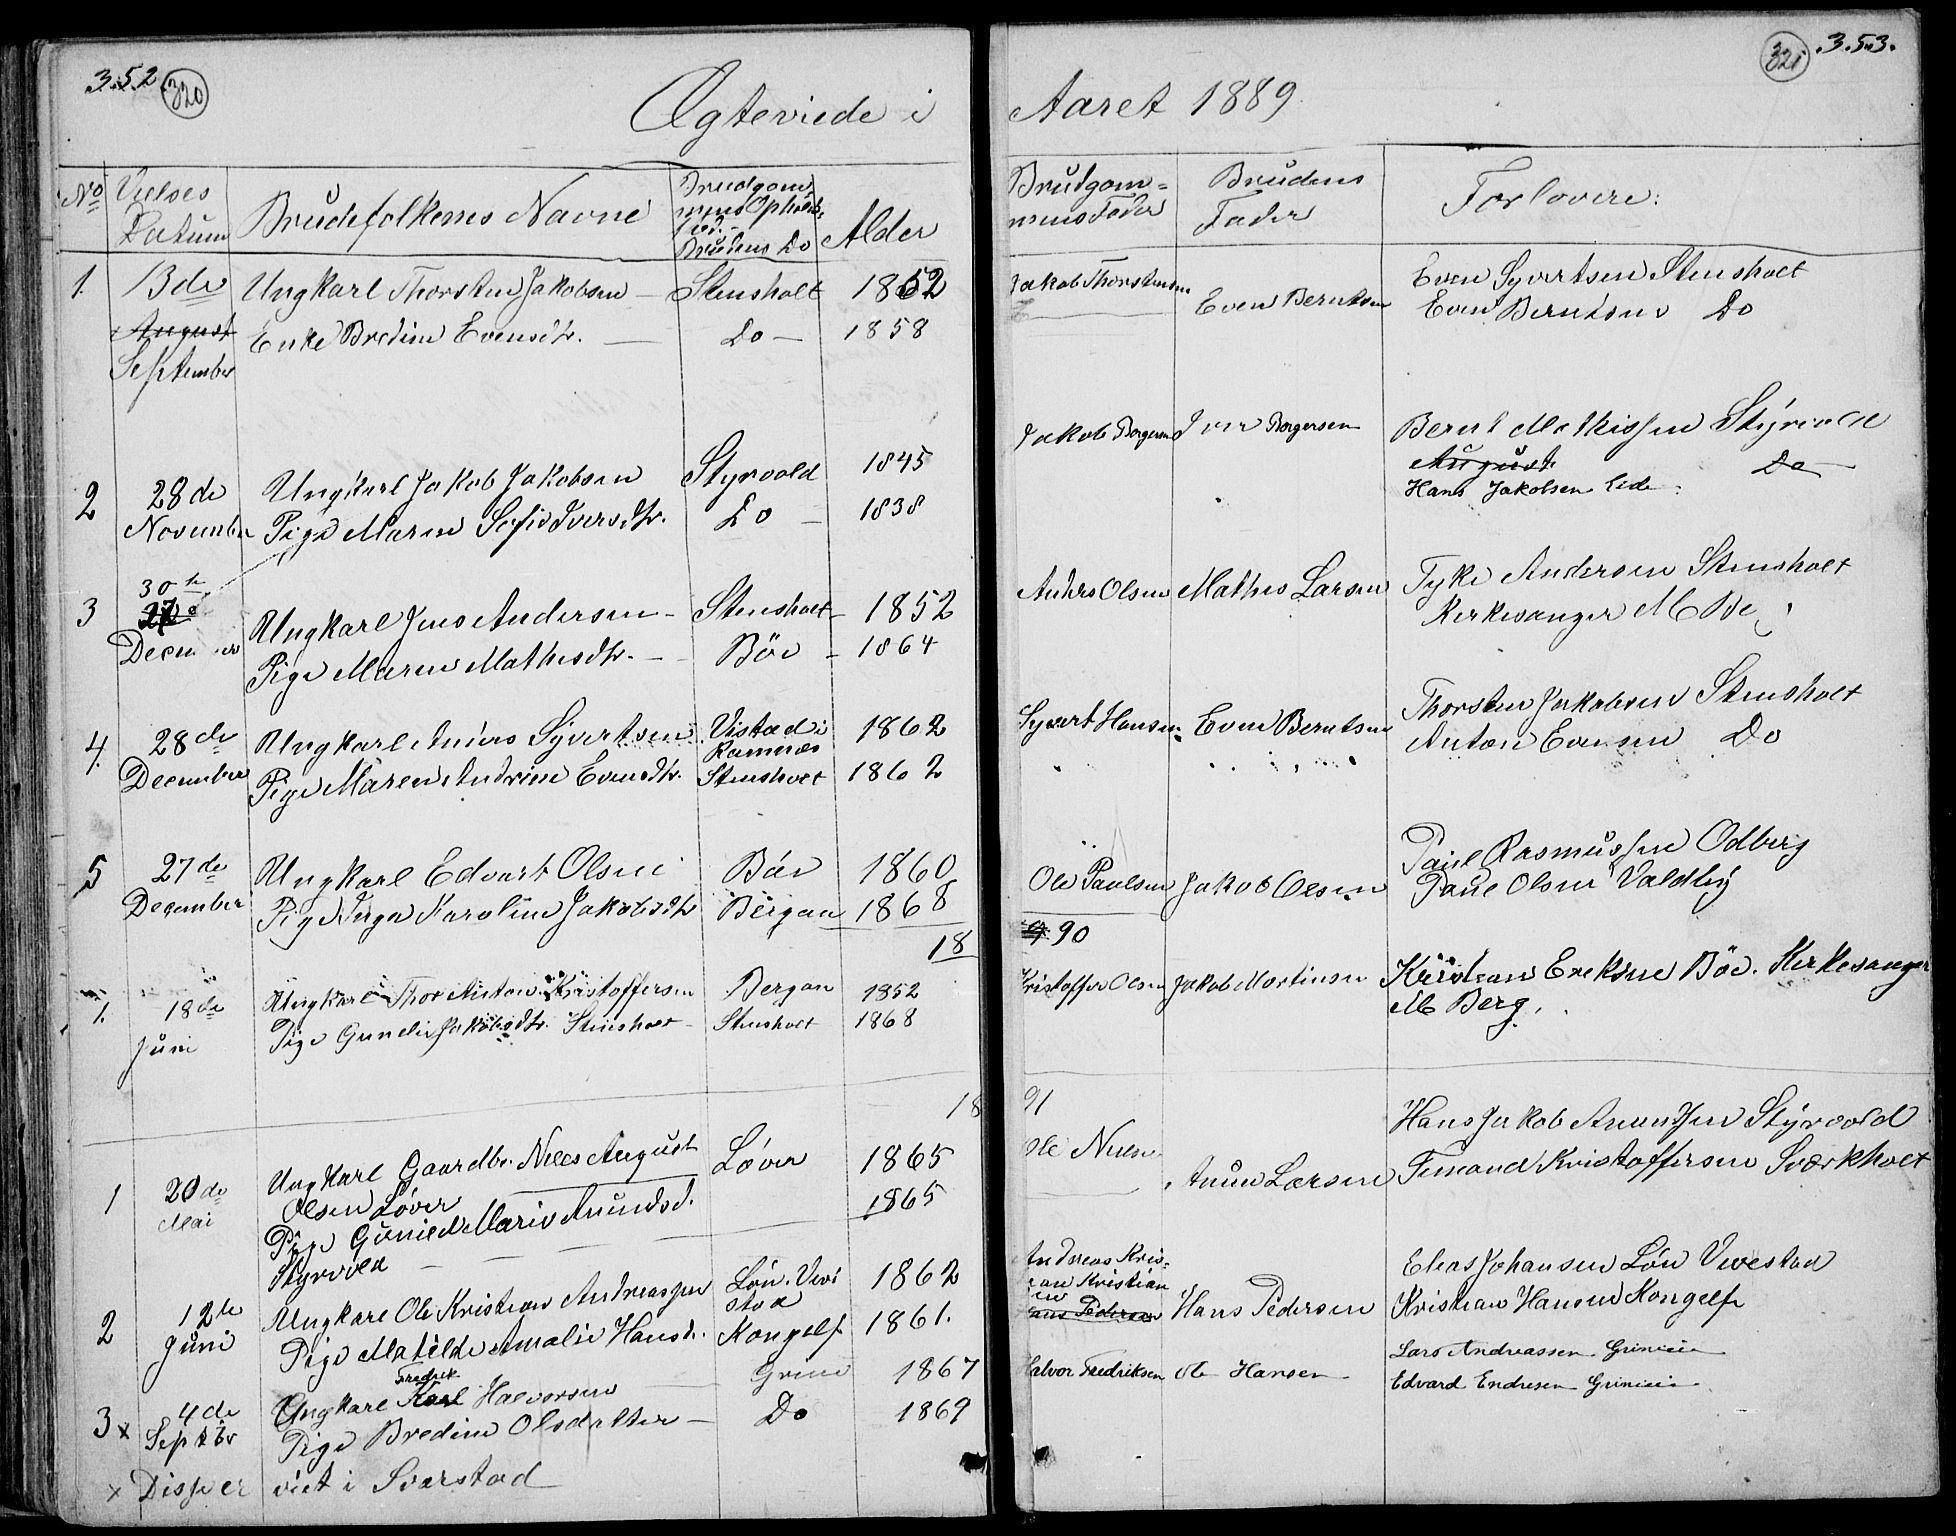 3.52 320
Ægteviede i
No Vielses Datum Brudefolkenes Navne Brudgommens Opholdssted Brudens Do Alder
1. 13de Ungkarl Thorsten Jakobsen — Stensholt 1852
August Enke Bredine Evensdtr. — Do — 1858
September
2 28de Ungkarl Jakob Jakobsen Styrvold 1845
November Pige Maren Sofie Iversdtr. Do — 1838
30te
3 27de Ungkarl Jens Andersen — Stensholt — 1852
December Pige Maren Mathisdtr. — Böe — 1864
4. 28de Ungkarl Anders Syvertsen Vistad i Ramnæs 1862
December Pige Maren Andrine Evensdtr. Stensholt 1862
5 27de Ungkarl Edvart Olsen Böe 1860
December Pige Inga Karoline Jakobsdtr Bergan 1868
18
1. 18de Ungkarl Thor Anton Kristoffersen Bergan 1852
Juni Pige Gunelie Jakobsdtr. Stensholt — Stensholt 1868
18
1 20de Ungkarl Gaardbr. Nils August Löver 1865
Mai Olsen Löver
Pige Gunild Marie Anundsd. 1865
Styrvold — — —
2 12te Ungkarl Ole Kristian Andreassen Lön. Vivestad 1862
Juni Pige Matilde Amalie Hansd. Kongelf 1861.
Fredrik
3 x 4de Ungkarl Karl Halvorsen — Grinie 1867
Septbr Pige Bredine Olsdatter — Do 1869
x Disse er viet i Svarstad
321 .3.53.
Aaret 1889
Brudgommens Fader Brudens Fader Forlovere:
Jakob Thorstensen Even Berntsen Even Syvertsen Stensholt
Even Berntsen Do
Jakob Borgersen Iver Borgersen Bernt Mathissen Styrvold
August
Hans Jakobsen Lide. Do
Anders Olsen Mathis Larsen Tyke Andersen Stensholt
Kirkesanger M Be
Syvert Hansen Even Berntsen Thorsten Jakobsen Stensholt
Anton Evensen Do
Paul Rasmussen Odberg
Ole Paulsen Jakob Olsen Paul Olsen Valdby
90
Kristoffer Olsen Jakob Martinsen Kristian Ereksen Böe. Kirkesanger
M Berg.
91
Hans Jakob Anundsen Styrvold
Ole Nielsen Anun Larsen Temand Kristoffersen Sværkholt
Andreas Kristian Kristiansen Elias Johansen Lön Vivestad
Hans Pedersen Hans Pedersen Kristian Hansen Kongelf
Halvor Fredriksen Ole Hansen Lars Andreassen Grinie
Edvard Endresen Grinie